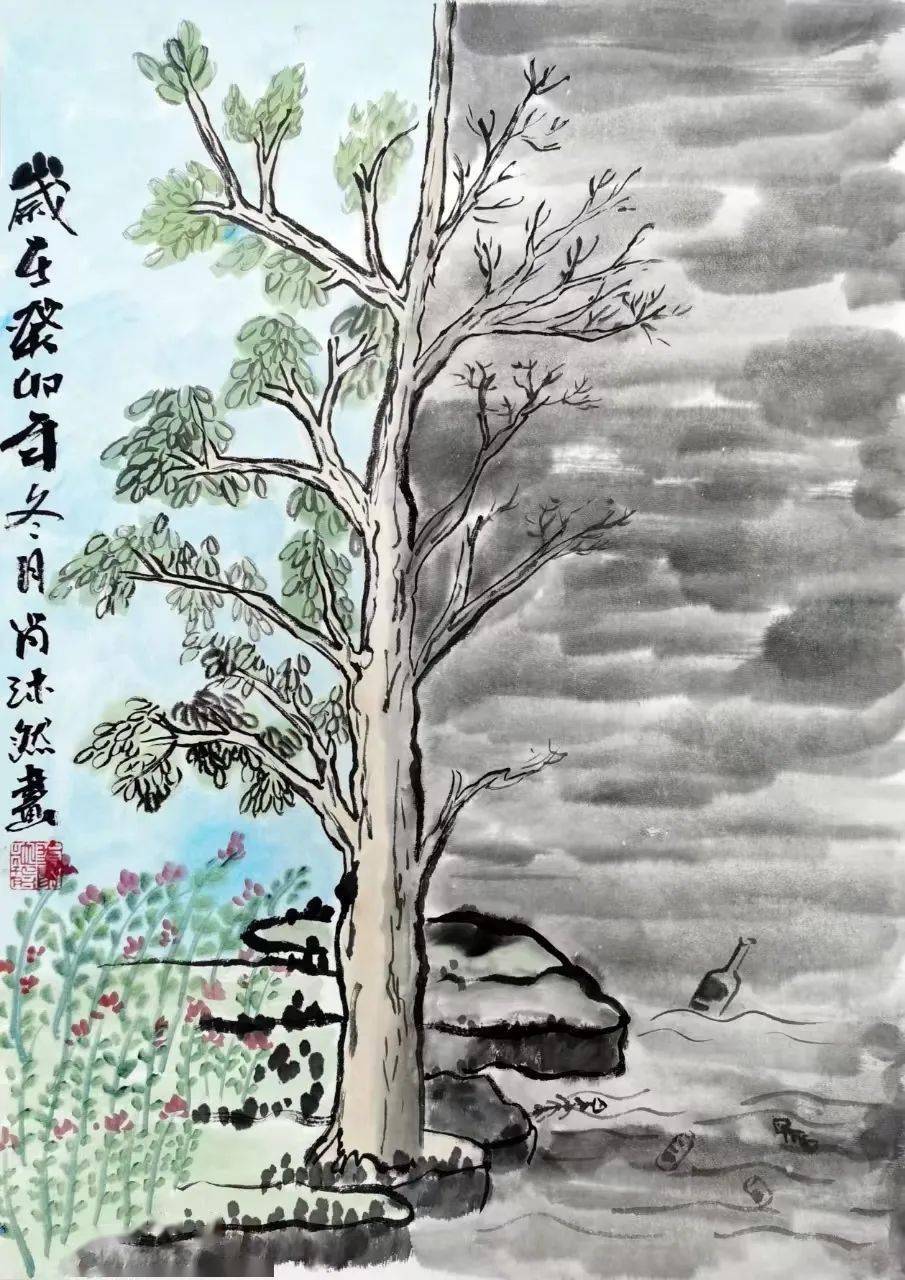 歲在癸卯年冬月尚沐然畫